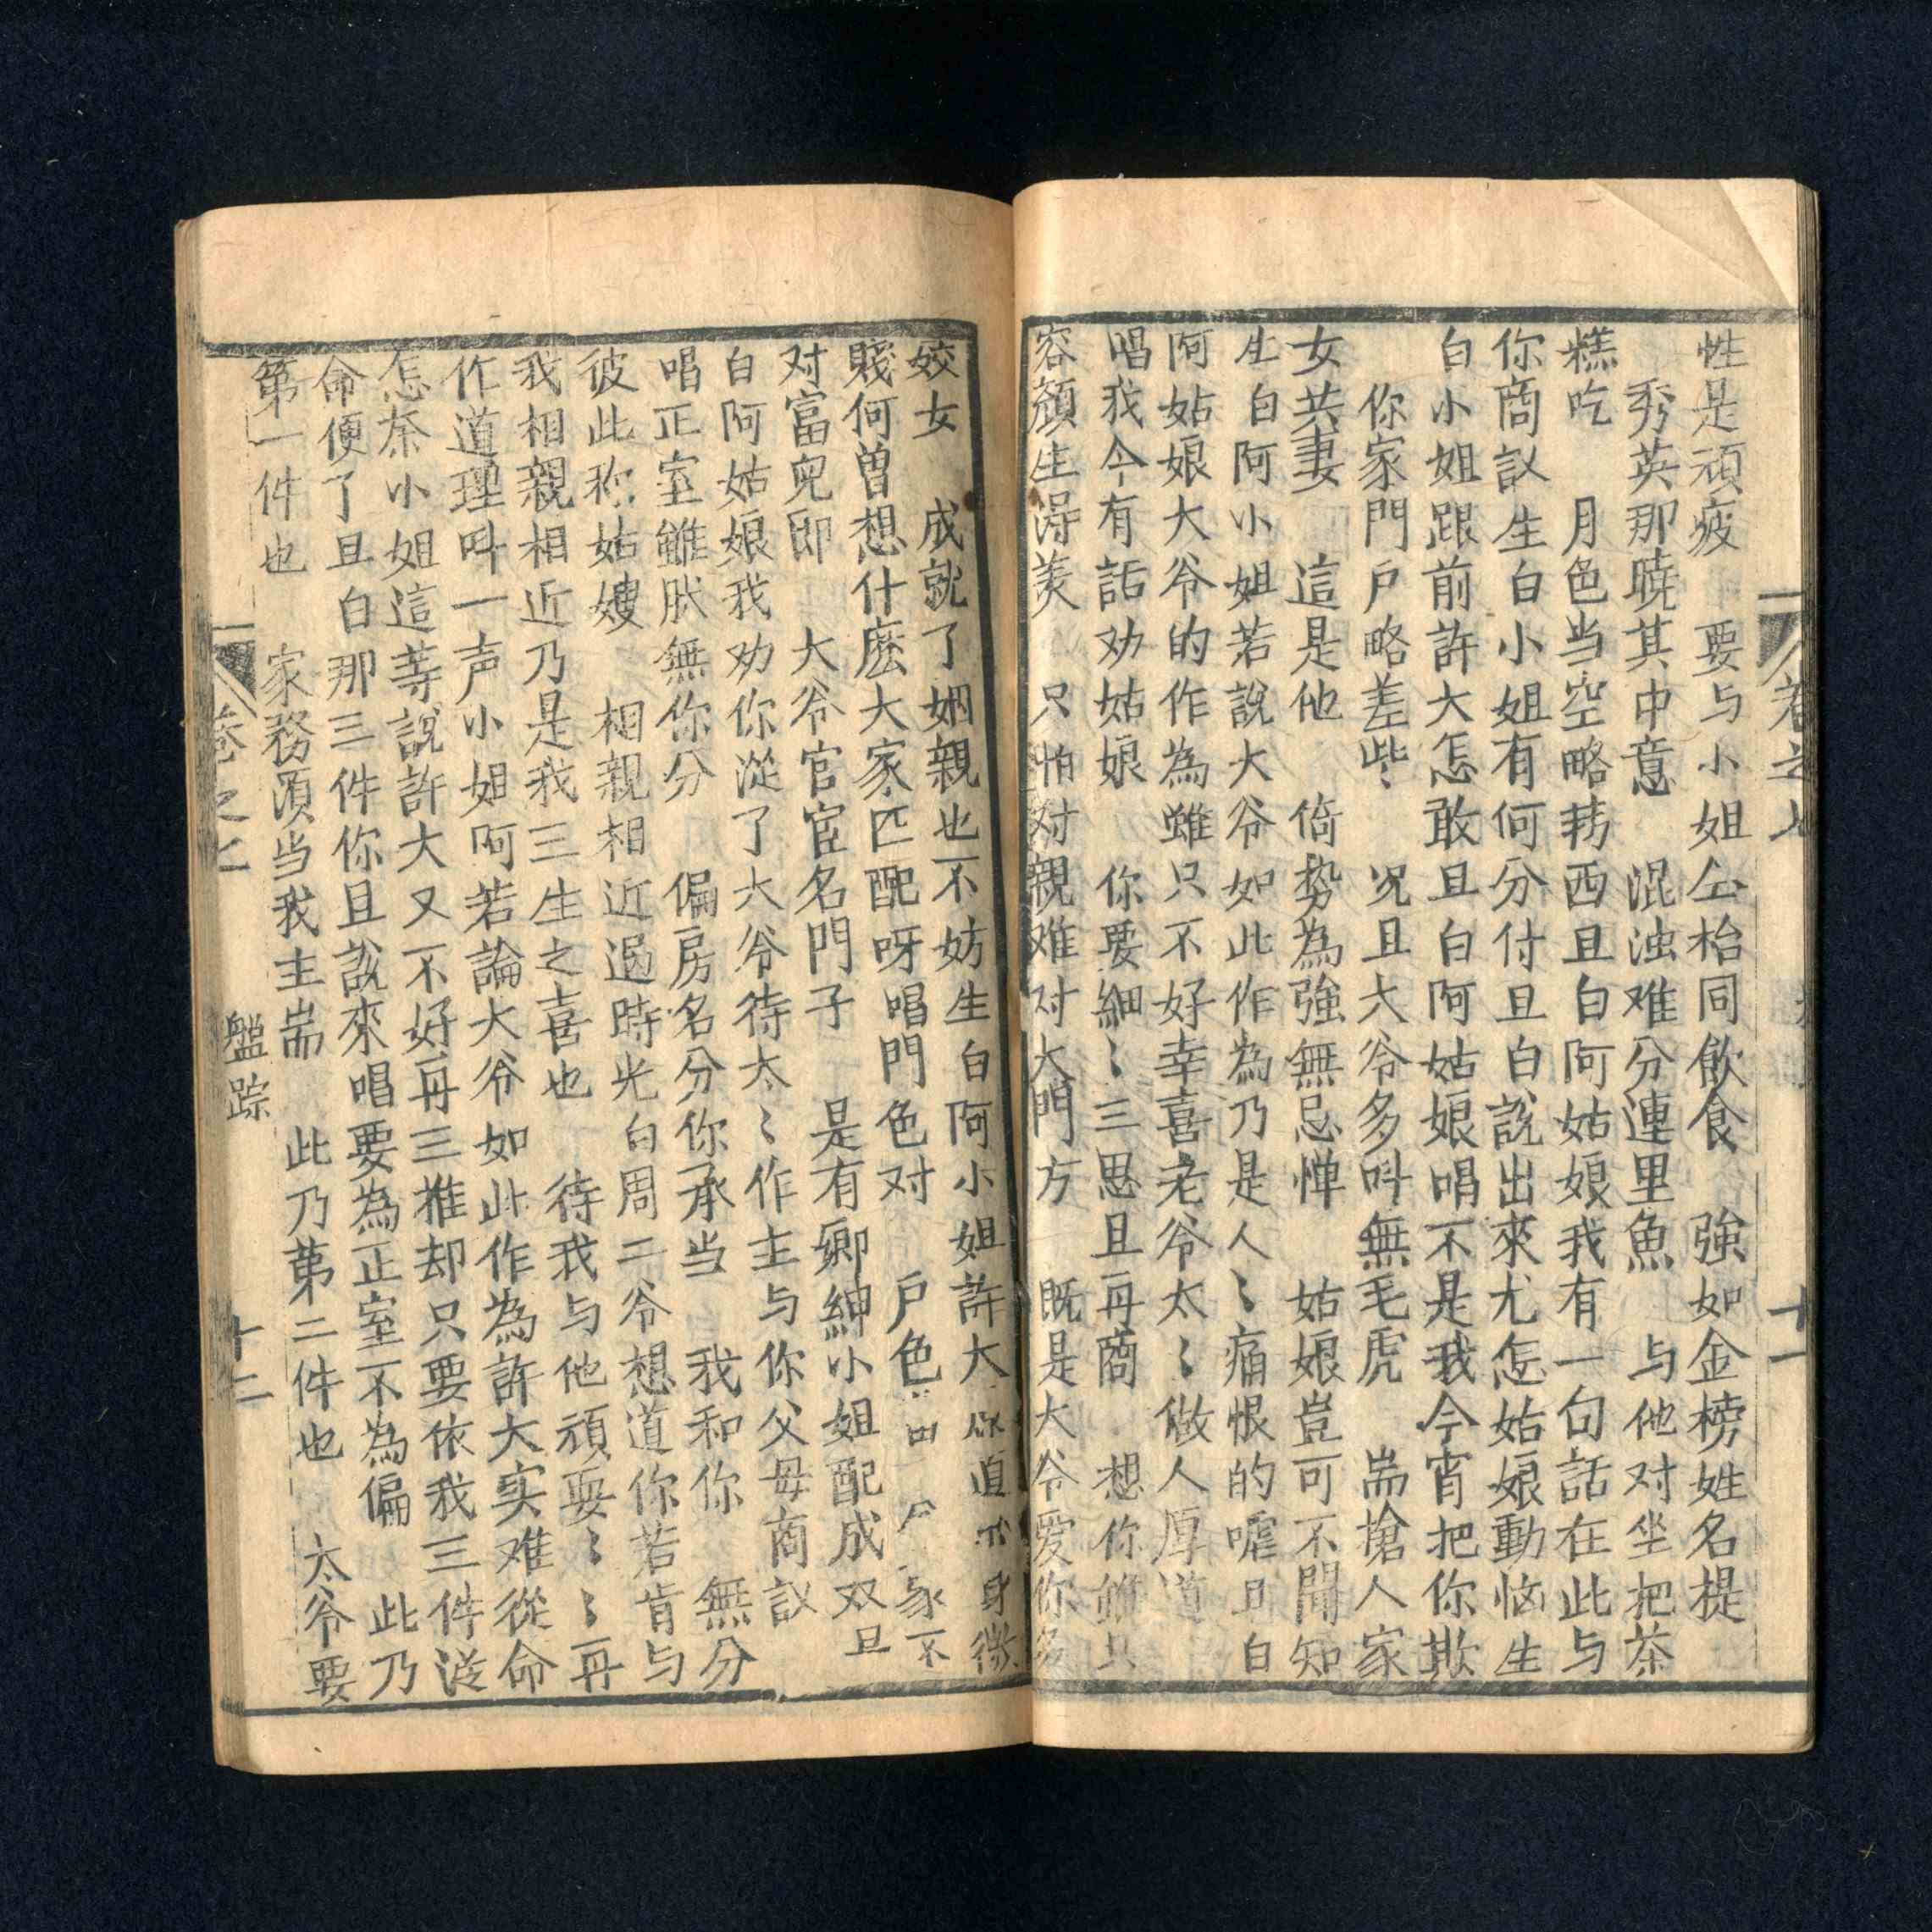 卷之七
十一
性是頑疲 要与小姐仝枱同飲食 強如金榜姓名提
秀英那曉其中意 混浊难分連里魚 与他对坐把茶
糕吃 月色当空略转西旦白阿姑娘我有一句話在此与
你商議生白小姐有何分付旦白說出來尤怎姑娘動恼生
白小姐跟前許大怎敢旦白阿姑娘唱不是我今宵把你欺
你家門戶略差些 况且大爷多呌無毛虎 耑搶人家
女共妻 這是他 倚势為強無忌惮 姑娘豈可不聞知
生白阿小姐若說大爷如此作為乃是人〻痛恨的嘘旦白
阿姑娘大爷的作為雖只不好幸喜老爷太〻做人厚道
唱我今有話劝姑娘 你要細〻三思且再商 想你
容顏生得美 只怕对親难对大門方 既是大爷爱你
姣女 成就了姻親也不妨生白阿小姐許大 身微
賤何曾想什麽大家匹配呀唱門色对 戶色 家不
对富兒郎 大爷官宦名門子 是有卿紳小姐配成双旦
白阿姑娘我劝你從了大爷待太〻作主与你父母商議
唱正室雖肰無你分 偏房名分你承当 我和你 無分
彼此称姑嫂 相親相近過時光白周二爷想道你若肯与
我相親相近乃是我三生之喜也 待我与他頑耍〻〻再
作道理呌一声小姐阿若論大爷如此作為許大实难從命
怎奈小姐這䓁說許大又不好再三推却只要依我三件從
命便了旦白那三件你且說來唱要為正室不為偏 此乃
第一件也 家務須当我主耑 此乃第二件也 太爷要
卷之七
盤踪
十二